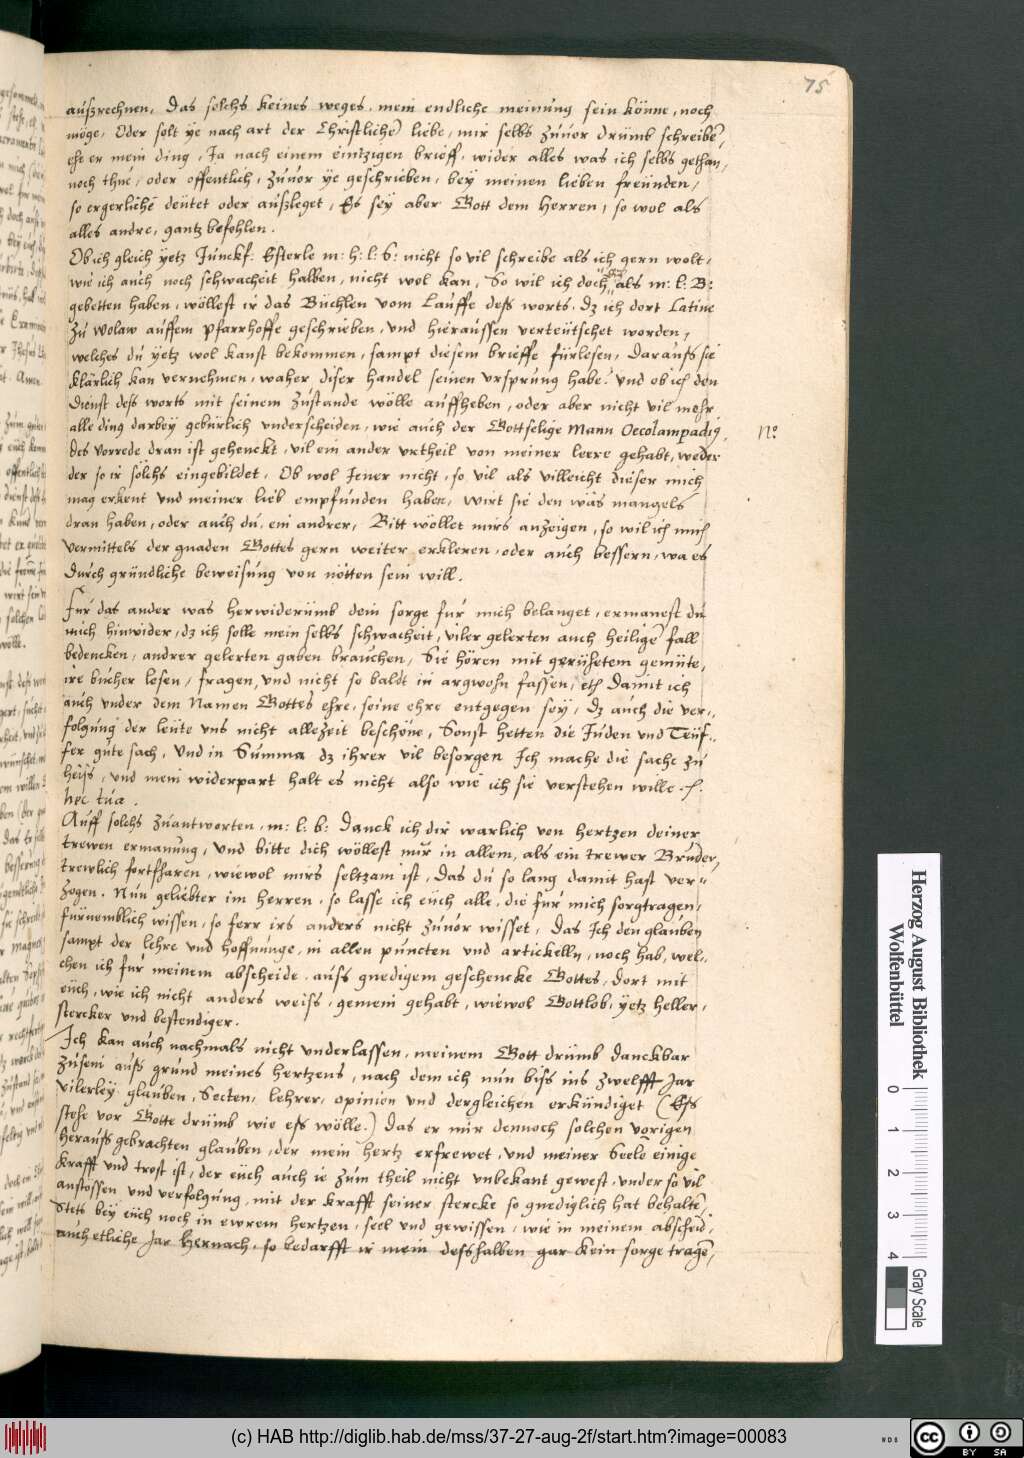 75
außrechnen, Das solchs keines weges, mein endliche meinung sein könne, noch
möge, Oder solt ye nach art der Christliche͂ liebe, mir selbs zuuor drumb schreibe͂,
ehe er mein ding, Ja nach einem eintzigen brieff, wider alles was ich selbs gethan,
noch thue, oder offentlich, zuuor ye geschrieben, bey meinen lieben freunden,
so ergerliche͂ deutet oder außleget, Es sey aber Gott dem Herren, so wol als
alles andre, gantz befohlen.
Ob ich gleich yetz Junckf: Esterle m: h: l: S: nicht so vil schreibe als ich gern wolt,
wie ich auch noch schwacheit halben, nicht wol kan, So wil ich doch als m: l: B:
gebetten haben, wöllest ir das Büchlen vom Lauffe deß worts, dz ich dort Latine
zu Wolaw auffem Pfarrhoffe geschrieben, und hieraussen verteutschet worden,
welches du yetz wol kanst bekommen, sampt diesem brieffe fürlesen, Darauß sie
klärlich kan vernehmen, waher diser handel seinen ursprung habe. Und ob ich den
dienst deß worts mit seinem zustande wölle auffheben, oder aber nicht vil mehr
alle ding darbey gebürlich underscheiden, wie auch der Gottselige Mann Oecolampadi9,
No
des vorrede dran ist gehenckt, vil ein ander urtheil von meiner leere gehabt, weder
der so ir solchs eingebildet, Ob wol Jener nicht, so vil als villeicht dieser mich
mag erkent und meiner lieb empfunden haben, Wirt sie den was mangels
dran haben, oder auch du, ein andrer, Bitt wöllet mirs anzeigen, so wil ich mich
vermittels der gnaden Gottes gern weiter erkleren, oder auch bessern, wa es
durch gründliche beweisung von nötten sein will.
Für das ander was herwiderumb dein sorge für mich belanget, ermanest du
mich hinwider, dz ich solle mein selbs schwacheit, viler gelerten auch heilige͂ fall
bedencken, andrer gelerten gaben brauchen, Sie hören mit gerühetem gemüte,
ire bücher lesen, fragen, und nicht so baldt in argwohn fassen, etc Damit ich
auch under dem Namen Gottes ehre, seine ehre entgegen sey, dz auch die ver-
folgung der leute uns nicht allezeit beschöne, Sonst hetten die Juden und Teuf-
fer gute sach, Und in Summa dz ihrer vil besorgen Ich mache die sache zu
heiß, und mein widerpart halt es nicht also wie ich sie verstehen wille.
hec tua.
Auff solchs zuantworten, m: l: b: Danck ich dir warlich von hertzen deiner
trewen ermanung, Und bitte dich wöllest mir in allem, als ein trewer Bruder,
trewlich fortfharen, wiewol mirs seltzam ist, das du so lang damit hast ver-
zogen. Nun geliebter im herren, so lasse ich euch alle, die für mich sorgtragen,
fürnemblich wissen, so ferr irs anders nicht zuuor wisset, Das Ich den glauben
sampt der lehre und hoffnunge, in allen puncten und artickelln, noch hab, wel-
chen ich für meinem abscheide, auß gnedigem geschencke Gottes, dort mit
euch, wie ich nicht anders weiß, gemein gehabt, wiewol Gottlob, yetz heller,
stercker und bestendiger.
Ich kan auch nachmals nicht underlassen, meinem Gott drumb danckbar
zusein auß grund meines hertzens, nach dem ich nun biß ins zwelfft Jar
vilerley glauben, Secten, lehrer, opinien und dergleichen erkündiget (Eß
stehe vor Gotte drumb wie eß wölle.) Das er mir dennoch solchen vorigen
herauß gebrachten glauben, der mein hertz erfrewet, und meiner Seele einige
krafft und trost ist, der euch auch ie zum theil nicht unbekant gewest, under so vil
anstossen und verfolgung, mit der krafft seiner stercke so gnediglich hat behalte͂,
Stets bey euch noch in ewrem hertzen, seel und gewissen, wie in meinem abscheid,
auch etliche Jar hernach, so bedarfft ir mein deßhalben gar kein sorge trage͂,
Herzog August Bibliothek
Wolfenbüttel
0 1 2 3 4
Gray Scale
(c) HAB http://diglib.hab.de/mss/37-27-aug-2f/start.htm?image=00083
WDB
cc BY SA